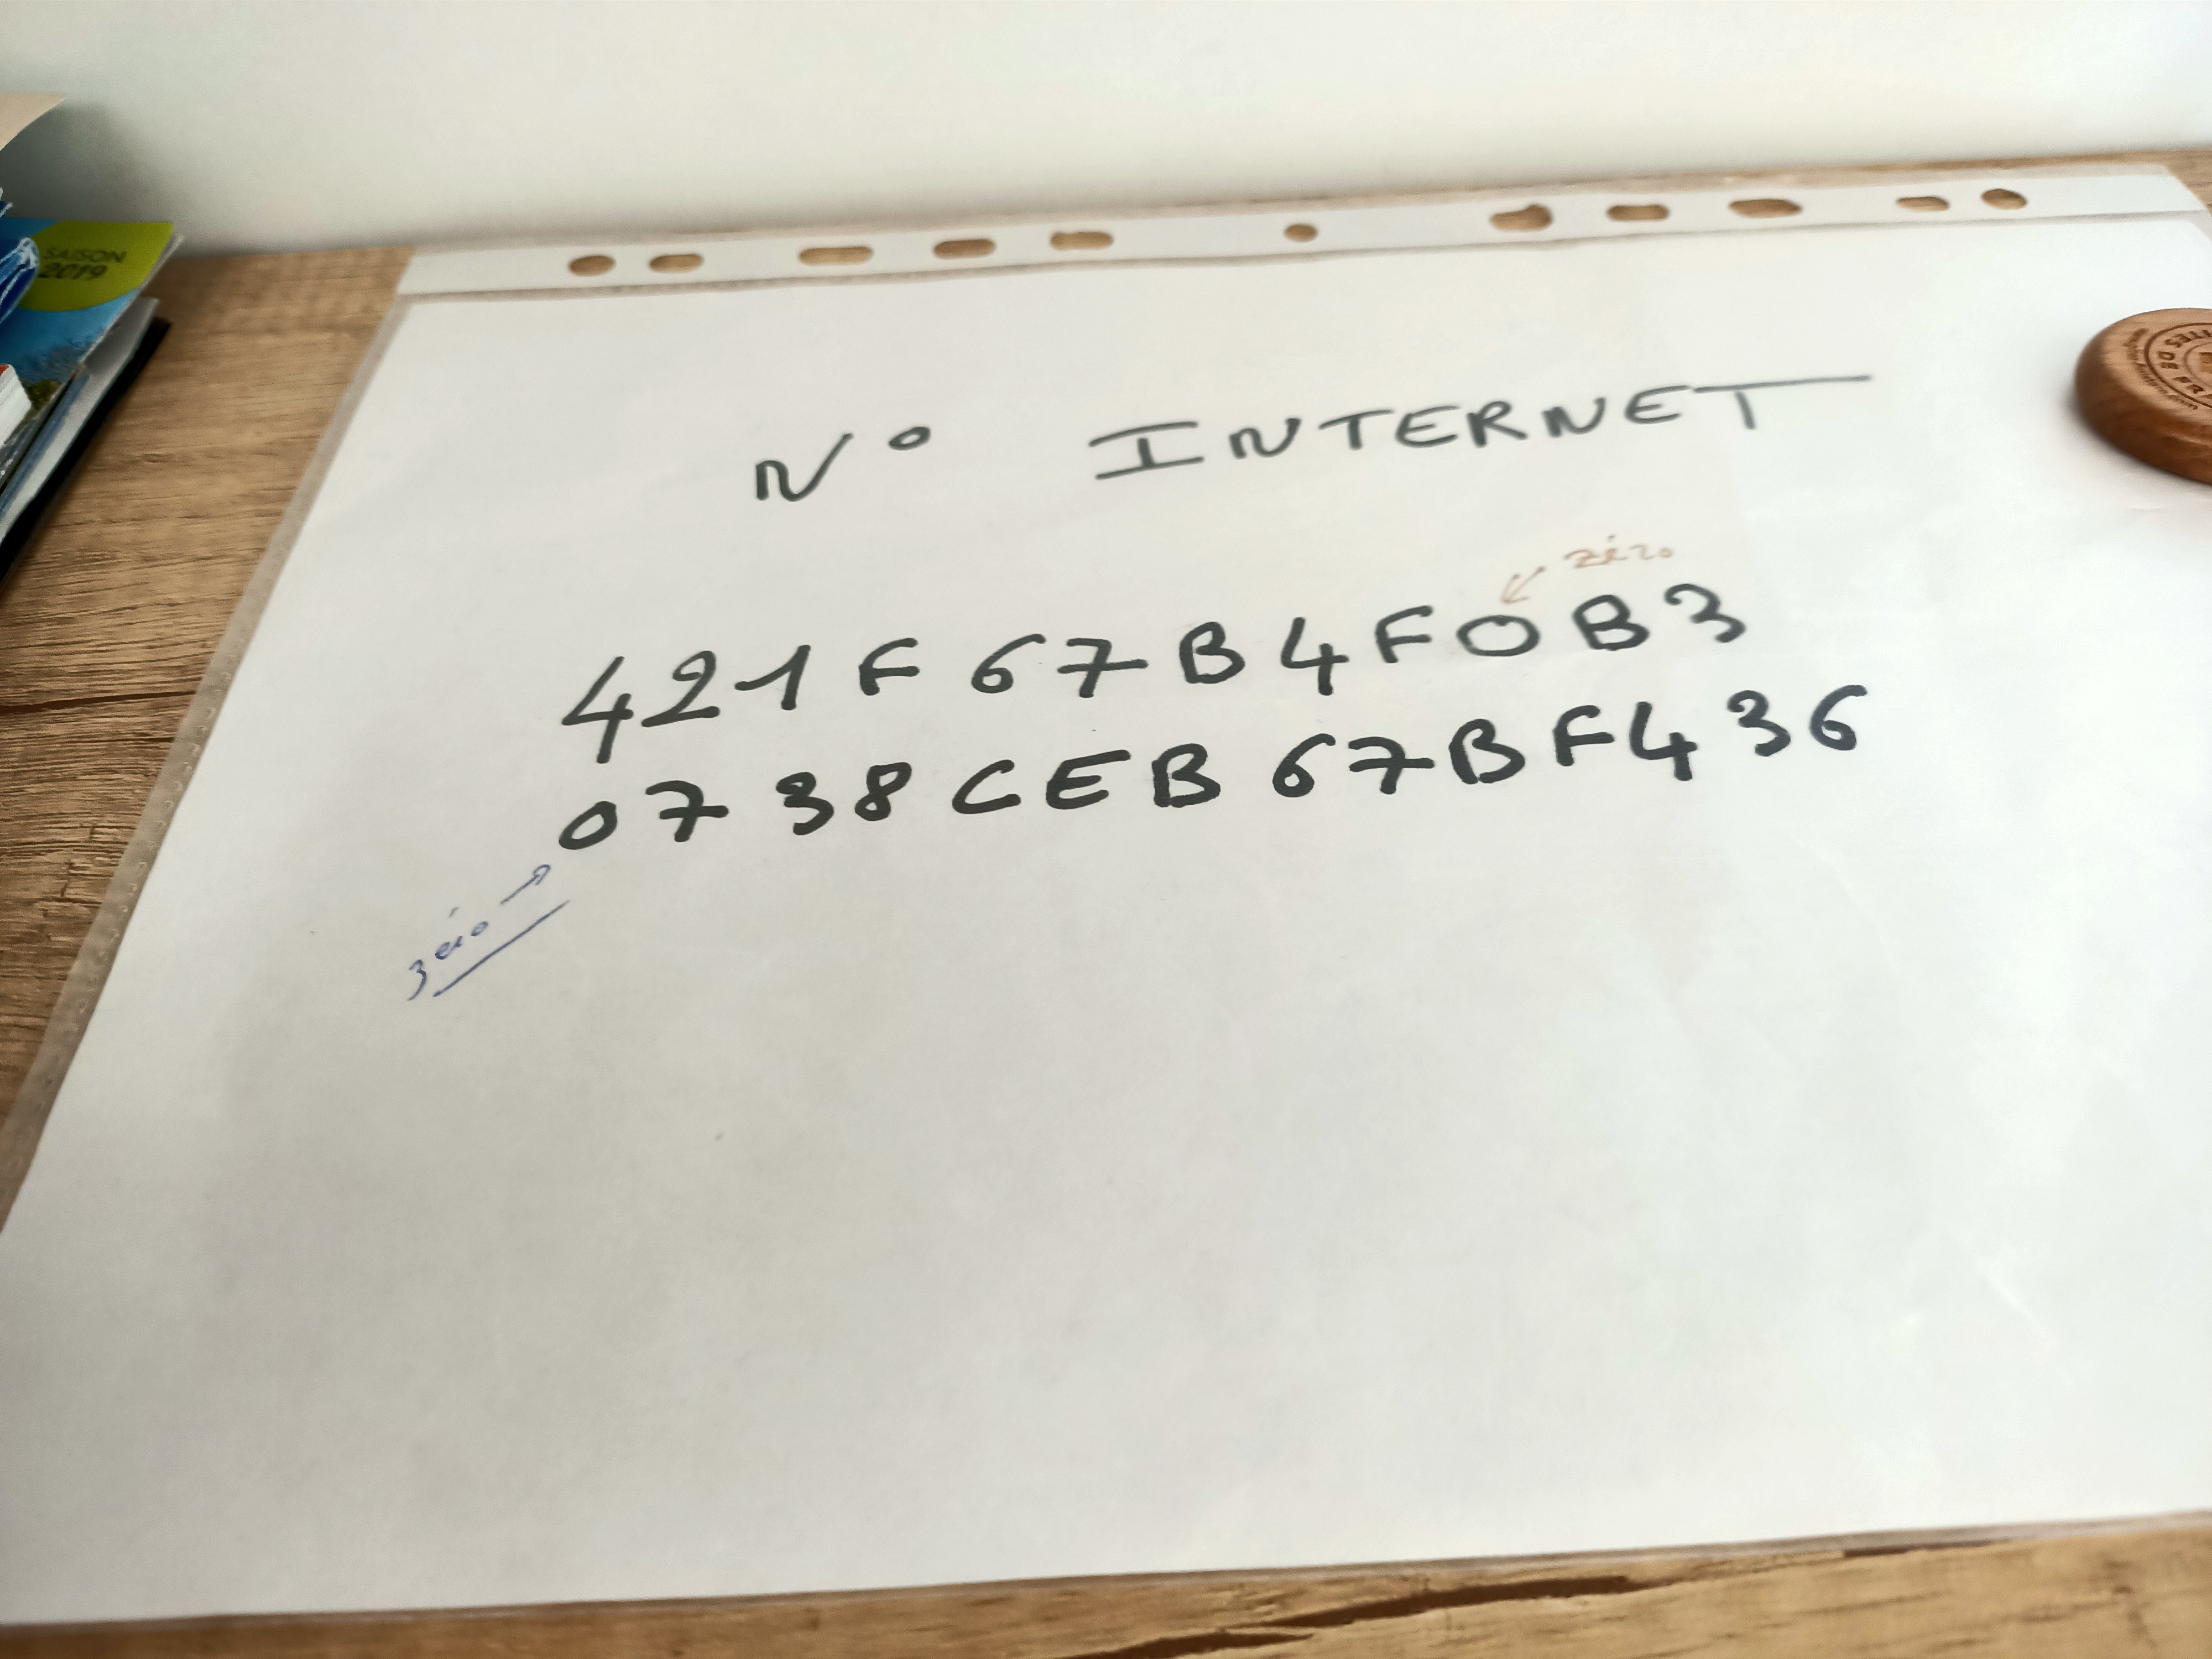 SAISON
2019
N° INTERNET
zéro
421F67B4F0B3
0738CEB67BF436
zéro